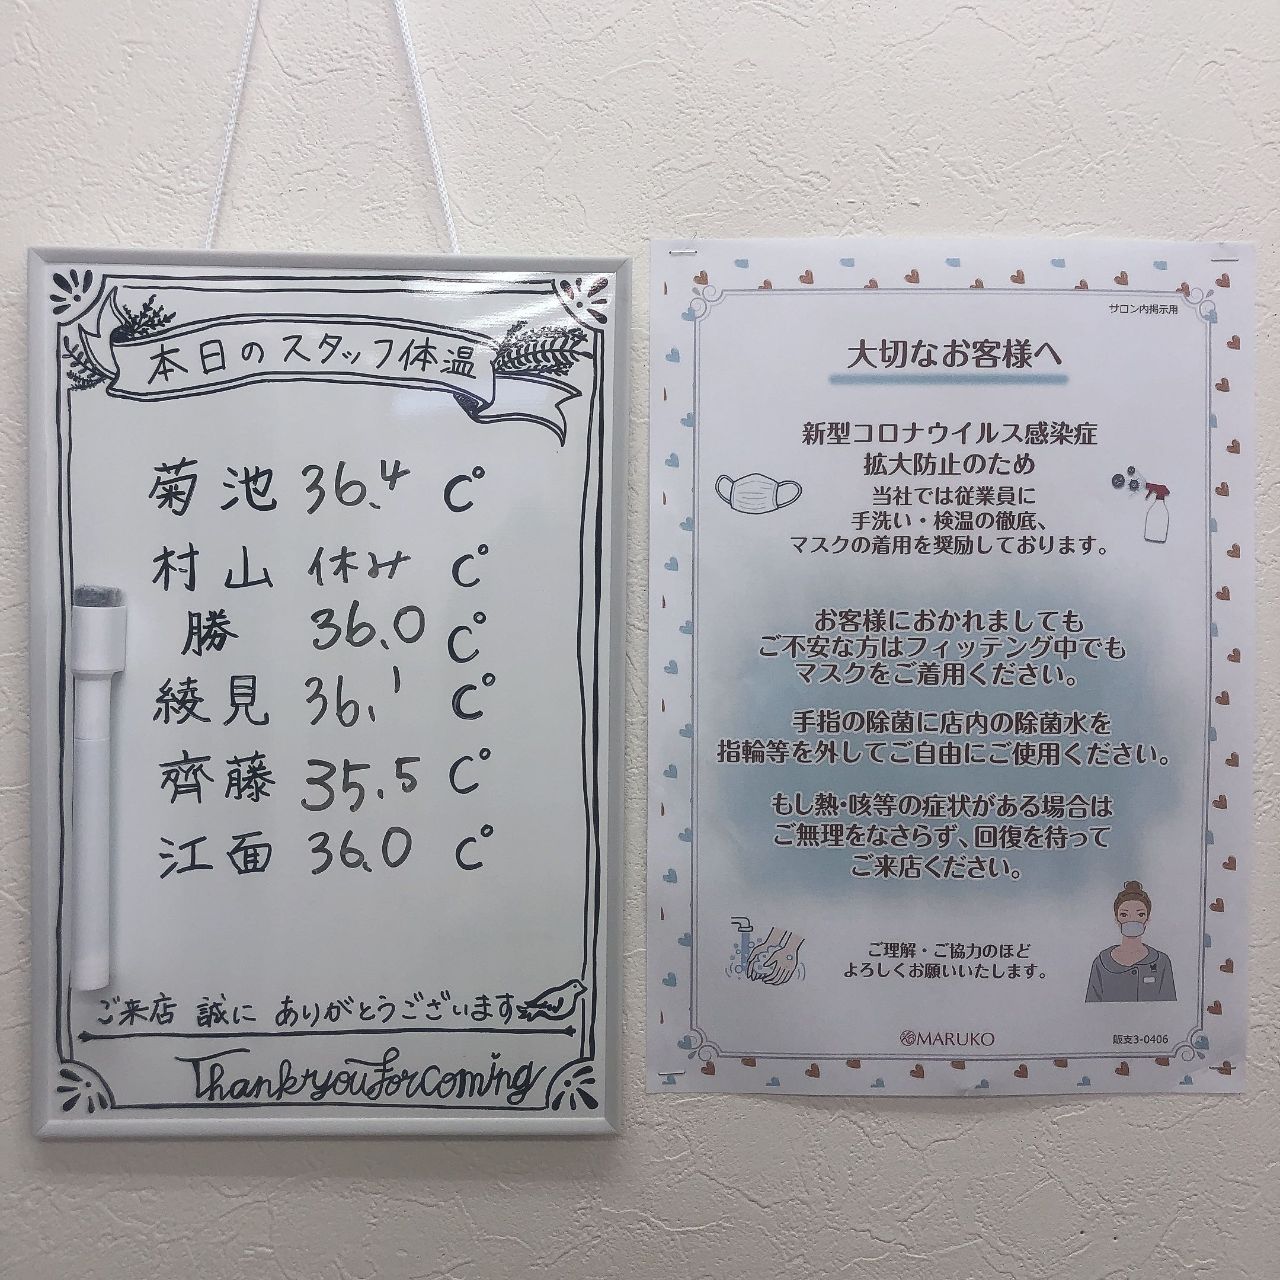 本日のスタッフ体温
菊池 36.4 C°
村山 休み C°
勝 36.0 C°
綾見 36.1 C°
齊藤 35.5 C°
江面 36.0 C°
ご来店 誠に ありがとうございます
Thank you for coming
サロン内掲示用
大切なお客様へ
新型コロナウイルス感染症
拡大防止のため
当社では従業員に
手洗い・検温の徹底、
マスクの着用を奨励しております。
お客様におかれましても
ご不安な方はフィッテング中でも
マスクをご着用ください。
手指の除菌に店内の除菌水を
指輪等を外してご自由にご使用ください。
もし熱・咳等の症状がある場合は
ご無理をなさらず、回復を待って
ご来店ください。
ご理解・ご協力のほど
よろしくお願いいたします。
MARUKO
販支3-0406